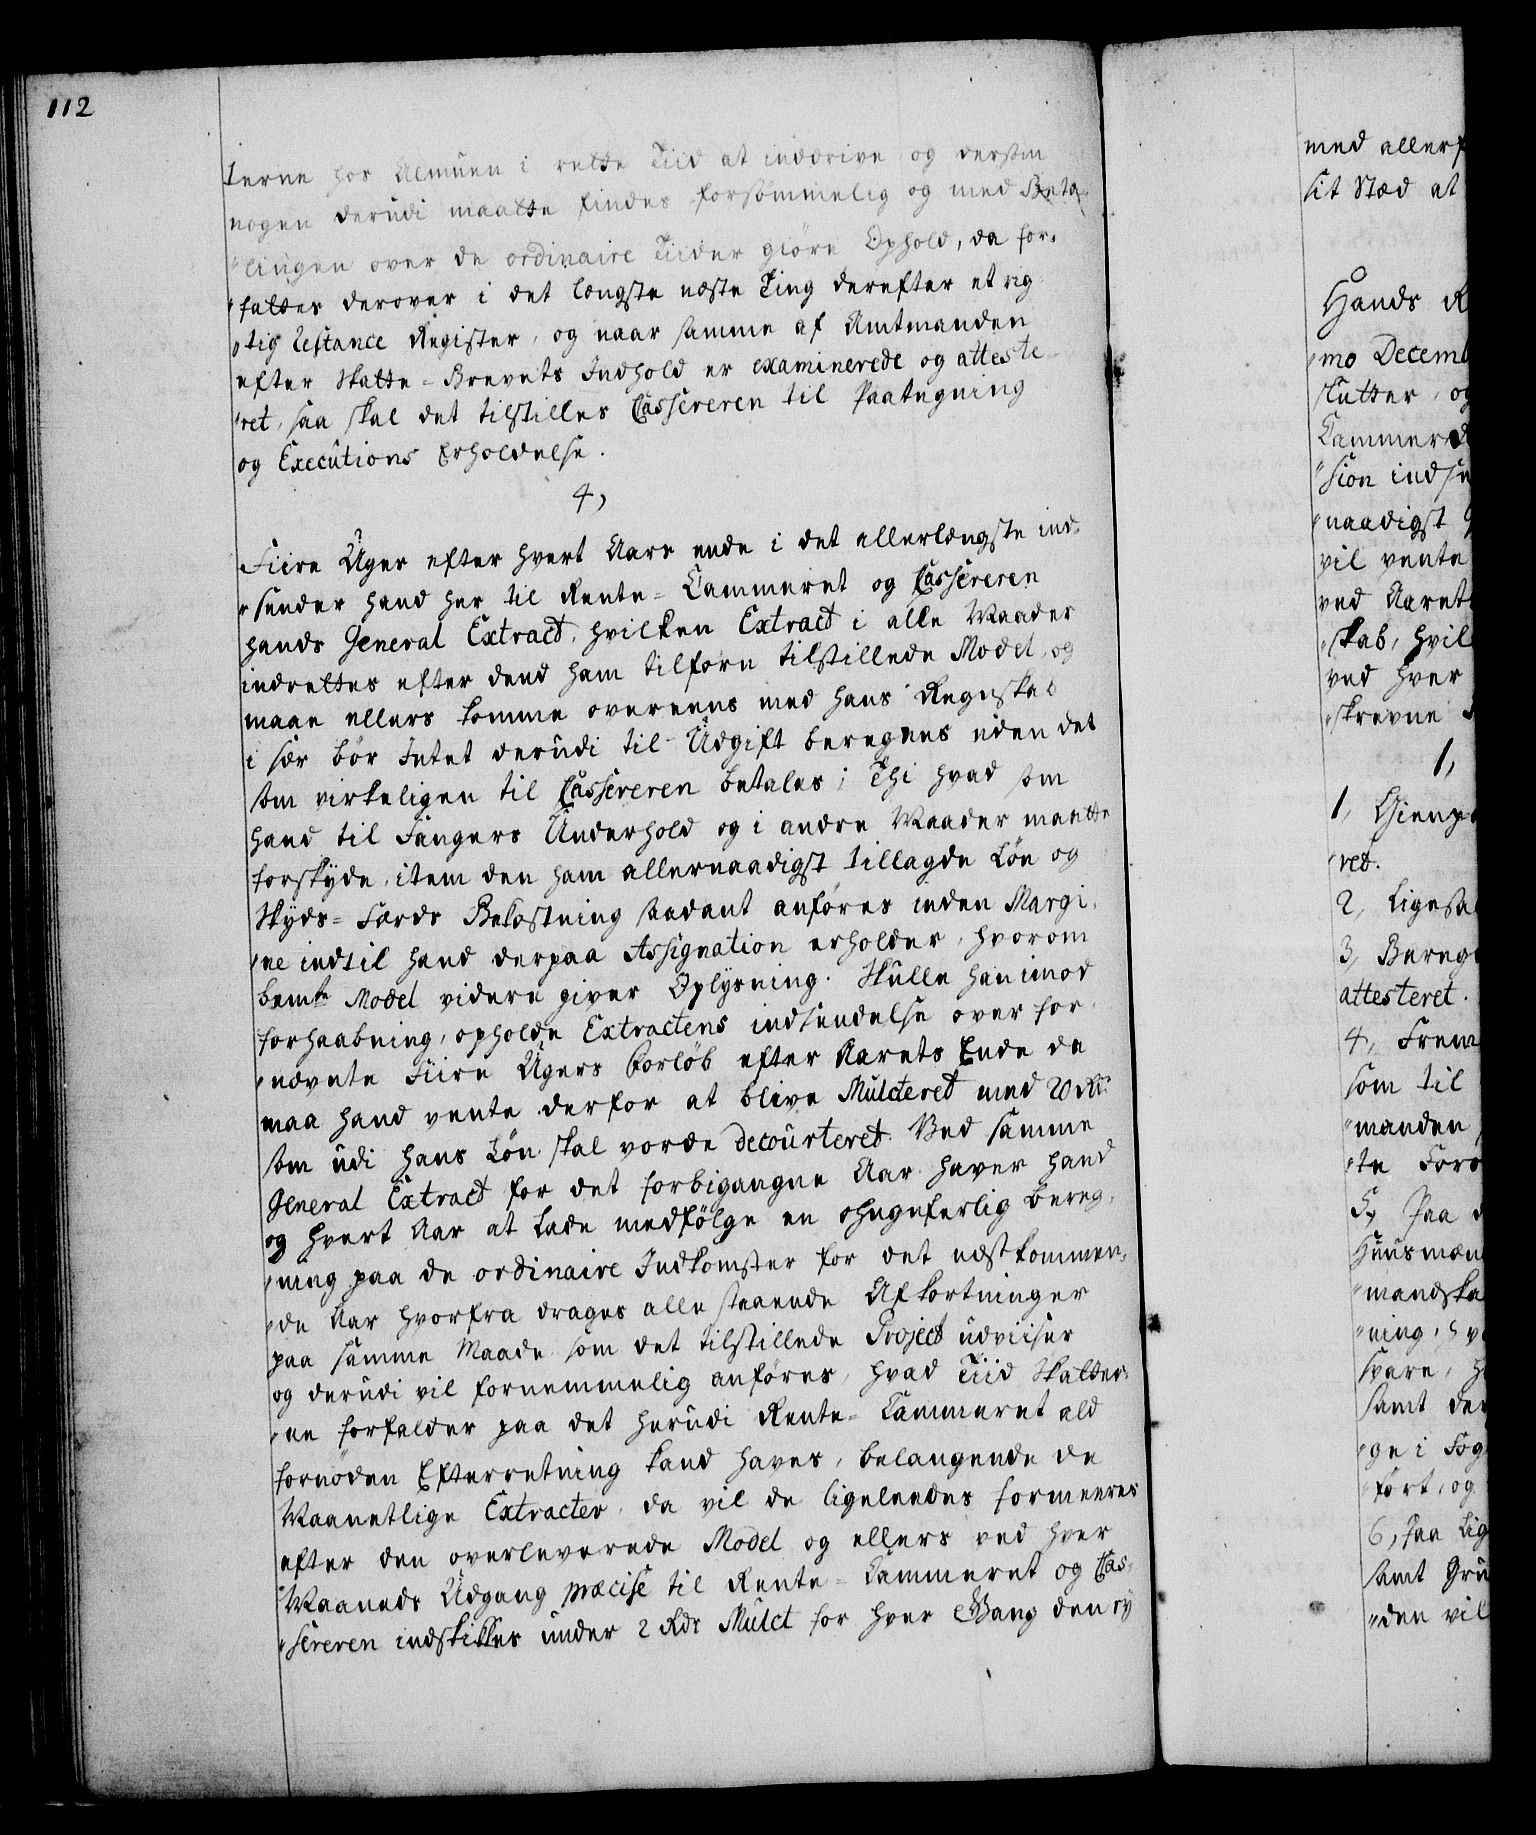 112
terne hos Almuen i rette Tiid at inddrive og dersom
nogen derudi maatte findes forsömmelig og med Beta-
"lingen over de ordinaire Tiider giöre Ophold, da for-
"fattes derover i det længste næste Ting derefter et rig-
"tig Restance Register, og naar samme af Amtmanden
efter Skatte-Brevets Indhold er examinerede og atteste-
"ret, saa skal det tilstilles Cassereren til Paategning
og Executions Erholdelse.
4,
Fiire Uger efter hvert Aars ende i det allerlængste ind-
"sender hand her til Rente-Cammeret og Cassereren
hands General Extract, hvilken Extract i alle Maader
indrettes efter dend ham tilforn tilstillede Model, og
maae ellers komme overeens med hans Regnskab
i sær bör Intet derudi til Udgift beregnes uden det
som virkeligen til Cassereren betales; Thi hvad som
hand til Fangers Underhold og i andre Maader maatte
forskyde, item den ham allernaadigst tillagde Lön og
Skyds-Færds Bekostning saadant anföres inden Margi-
"ne indtil hand derpaa Assignation erholder, hvorom
bemte Model videre giver Oplysning. Skulle han imod
forhaabning, opholde Extractens indsendelse over for-
"nævnte Fiire Ugers forlöb efter Aarets Ende da
maa hand vente derfor at blive Mulcteret med 20 Rdr
som udi hans Lön skal vorde decourteret. Ved samme
General Extract for det forbigangne Aar haver hand
og hvert Aar at lade medfölge en ohngeferlig Bereg-
"ning paa de ordinaire Indkomster for det næstkommen-
"de Aar hvorfra drages alle staaende Afkortninger
paa samme Maade som det tilstillede Project udviiser
og derudi vil fornemmelig anföres, hvad Tiid Skatter-
"ne forfalder paa det herudi Rente-Cammeret ald
fornöden Efterretning kand haves, belangende de
Maanetlige Extracter, da vil de ligeleedes formeeres
efter den overleverede Model og ellers ved hver
Maaneds Udgang præcise til Rente-Cammeret og Cas-
"sereren indskikkes under 2 Rdr Mulct for hver Gang den ey
med allerf
sit Stæd at
Hands R
"mo Decemb
slutter, og
Cammer
"sion indse
"naadigst
vil vente
ved Aaret
"skab, hvil
ved hver
"skrevne
1,
1, Gienpa
"ret.
2, Ligesaa
3, Bereg
attesteret.
4, Frem
som til
"manden
"te For
5, Paa d
Huusmæn
"mandska
"ning, hv
svare, h
samt der
"ge i Fog
"fört, og
6, saa Lig
samt Gru
"den vil